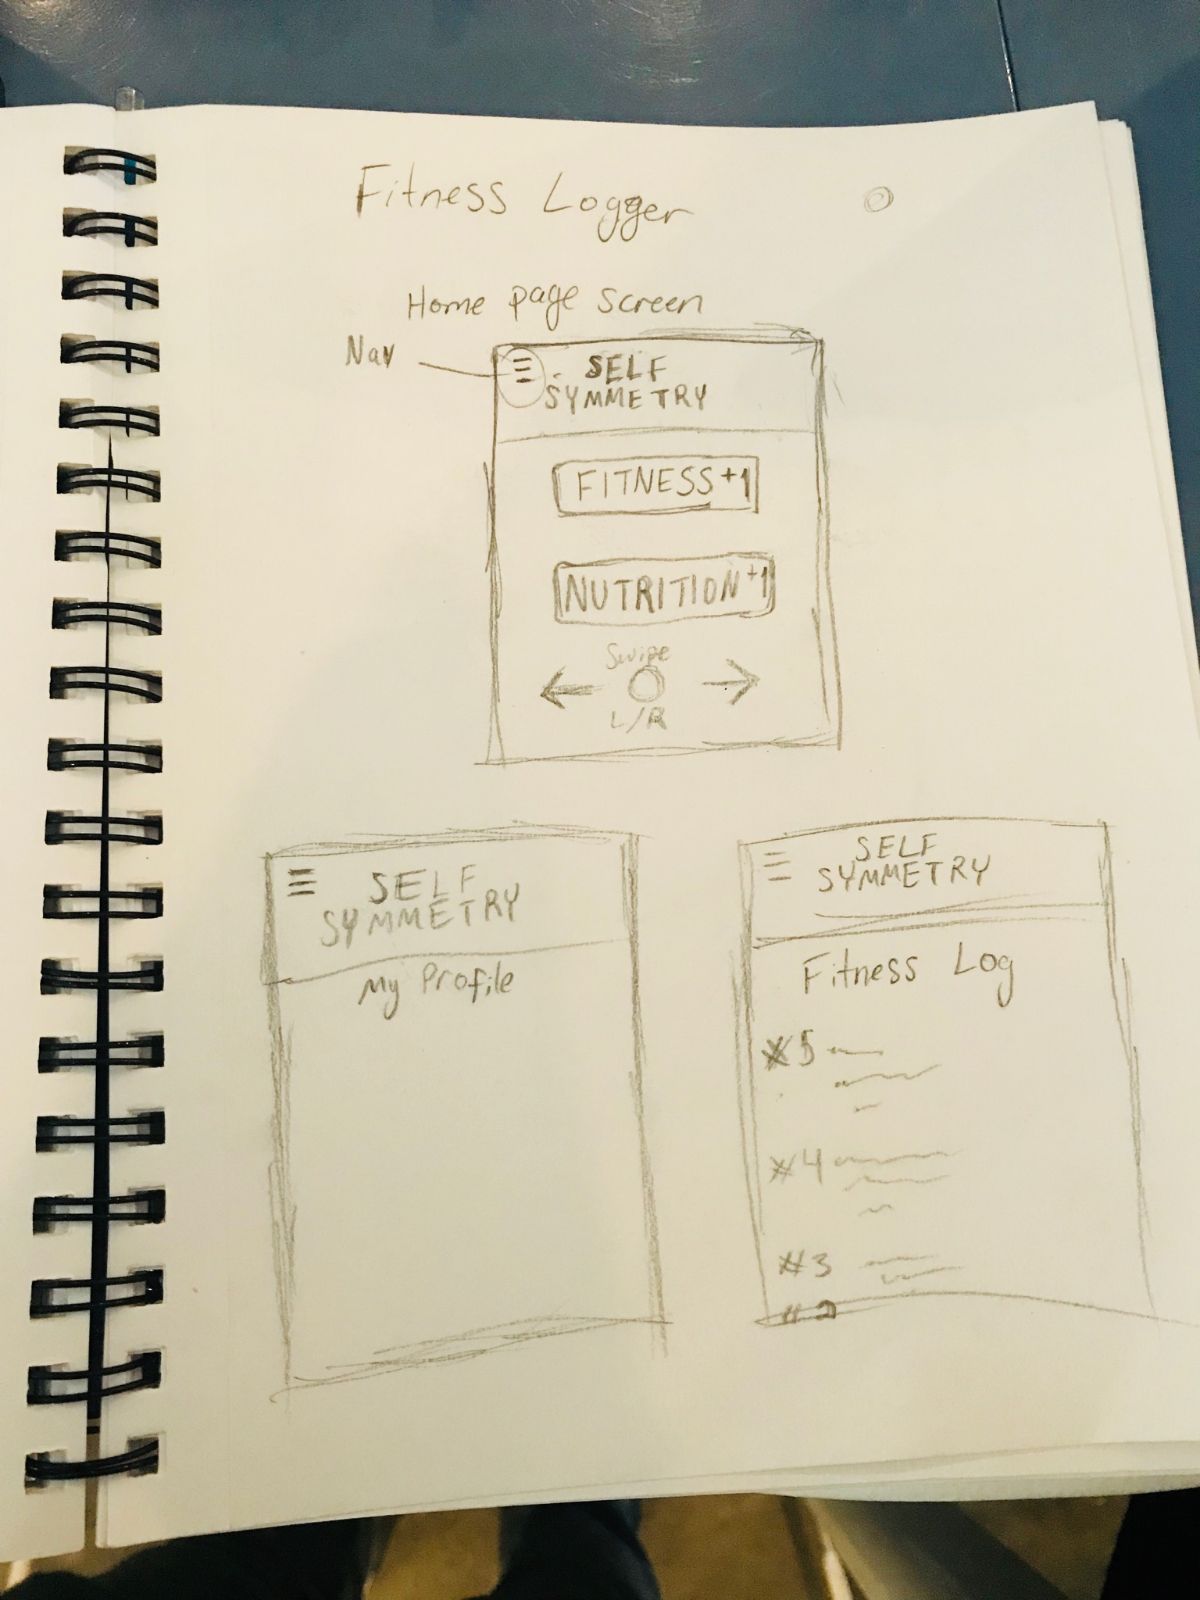 Fitness Logger
Home page screen
Nav
SELF
SYMMETRY
FITNESS +1
NUTRITION +1
Swipe
L/R
SELF
SYMMETRY
My Profile
SELF
SYMMETRY
Fitness Log
#5
#4
#3
#2